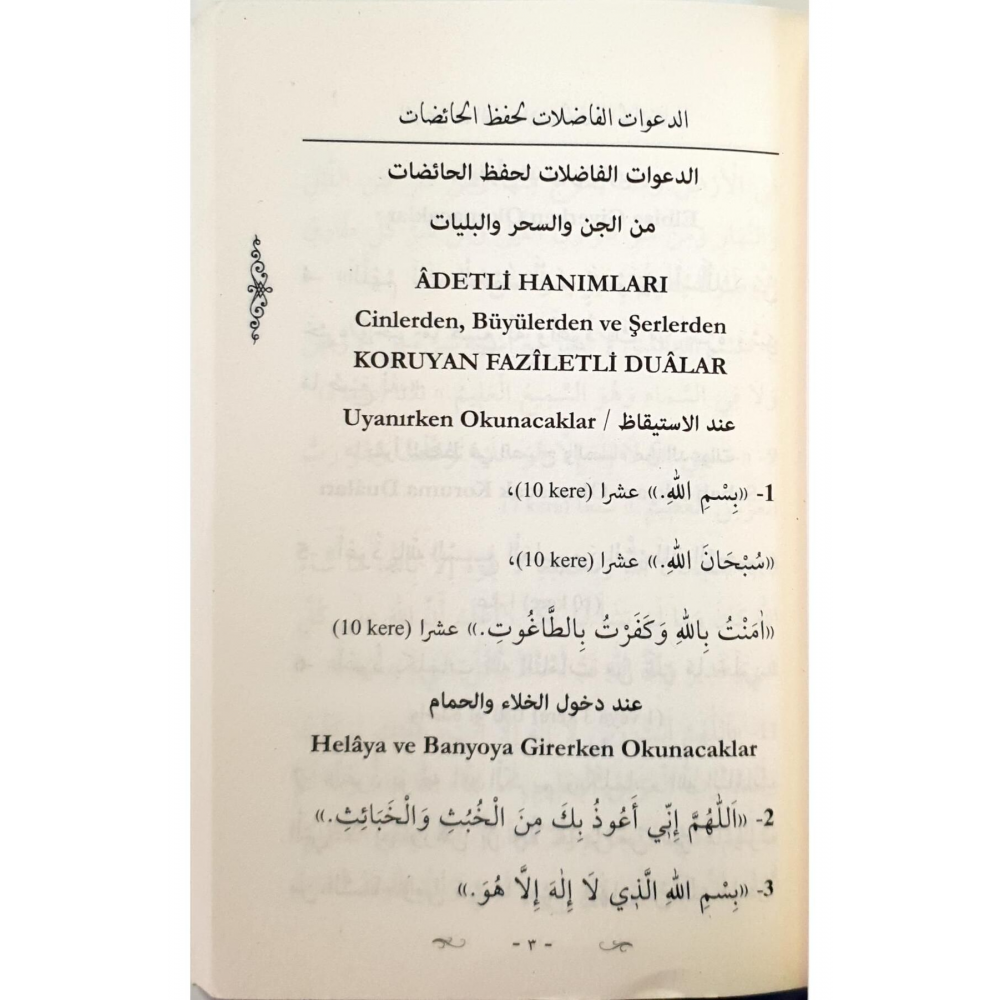 الدعوات الفاضلات لحفظ الحائضات
الدعوات الفاضلات لحفظ الحائضات
من الجن والسحر والبليات
ÂDETLİ HANIMLARI
Cinlerden, Büyülerden ve Şerlerden
KORUYAN FAZÎLETLİ DUÂLAR
Uyanırken Okunacaklar / عند الاستيقاظ
1- «بِسْمِ اللّٰهِ.» عشرا (10 kere)،
«سُبْحَانَ اللّٰهِ.» عشرا (10 kere)،
«اٰمَنْتُ بِاللّٰهِ وَكَفَرْتُ بِالطَّاغُوتِ.» عشرا (10 kere)
عند دخول الخلاء والحمام
Helâya ve Banyoya Girerken Okunacaklar
2- «اَللّٰهُمَّ إِنِّي أَعُوذُ بِكَ مِنَ الْخُبُثِ وَالْخَبَائِثِ.»
3- «بِسْمِ اللّٰهِ الَّذِي لَا إِلٰهَ إِلَّا هُوَ.»
- ٣ -